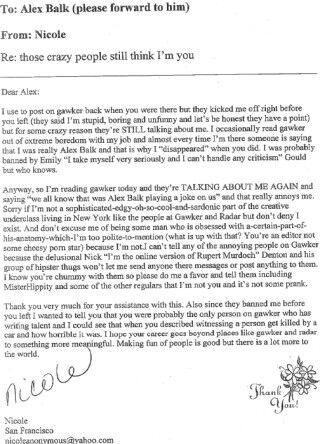 To: Alex Balk (please forward to him)
From: Nicole
Re: those crazy people still think I'm you
Dear Alex:
I use to post on gawker back when you were there but they kicked me off right before
you left (they said I'm stupid, boring and unfunny and let's be honest they have a point)
but for some crazy reason they're STILL talking about me. I occasionally read gawker
out of extreme boredom with my job and almost every time I'm there someone is saying
that I was really Alex Balk and that is why I "disappeared" when you did. I was probably
banned by Emily "I take myself very seriously and I can't handle any criticism" Gould
but who knows.
Anyway, so I'm reading gawker today and they're TALKING ABOUT ME AGAIN and
saying "we all know that was Alex Balk playing a joke on us" and that really annoys me.
Sorry if I'm not a sophisticated-edgy-oh-so-cool-and-sardonic part of the creative
underclass living in New York like the people at Gawker and Radar but don't deny I
exist. And don't excuse me of being some man who is obsessed with a-certain-part-of-
his-anatomy-which-I'm too polite-to-mention (what is up with that? You're an editor not
some cheesy porn star) because I'm not.I can't tell any of the annoying people on Gawker
because the delusional Nick "I'm the online version of Rupert Murdoch" Denton and his
group of hipster thugs won't let me send anyone there messages or post anything to them.
I know you're chummy with them so please do me a favor and tell them including
MisterHippity and some of the other regulars that I'm not you and it's not some prank.
Thank you very much for your assistance with this. Also since they banned me before
you left I wanted to tell you that you were probably the only person on gawker who has
writing talent and I could see that when you described witnessing a person get killed by a
car and how horrible it was. I hope your career goes beyond places like gawker and radar
to something more meaningful. Making fun of people is good but there is a lot more to
the world.
Nicole
Thank
You!
Nicole
San Francisco
nicoleanonymous@yahoo.com